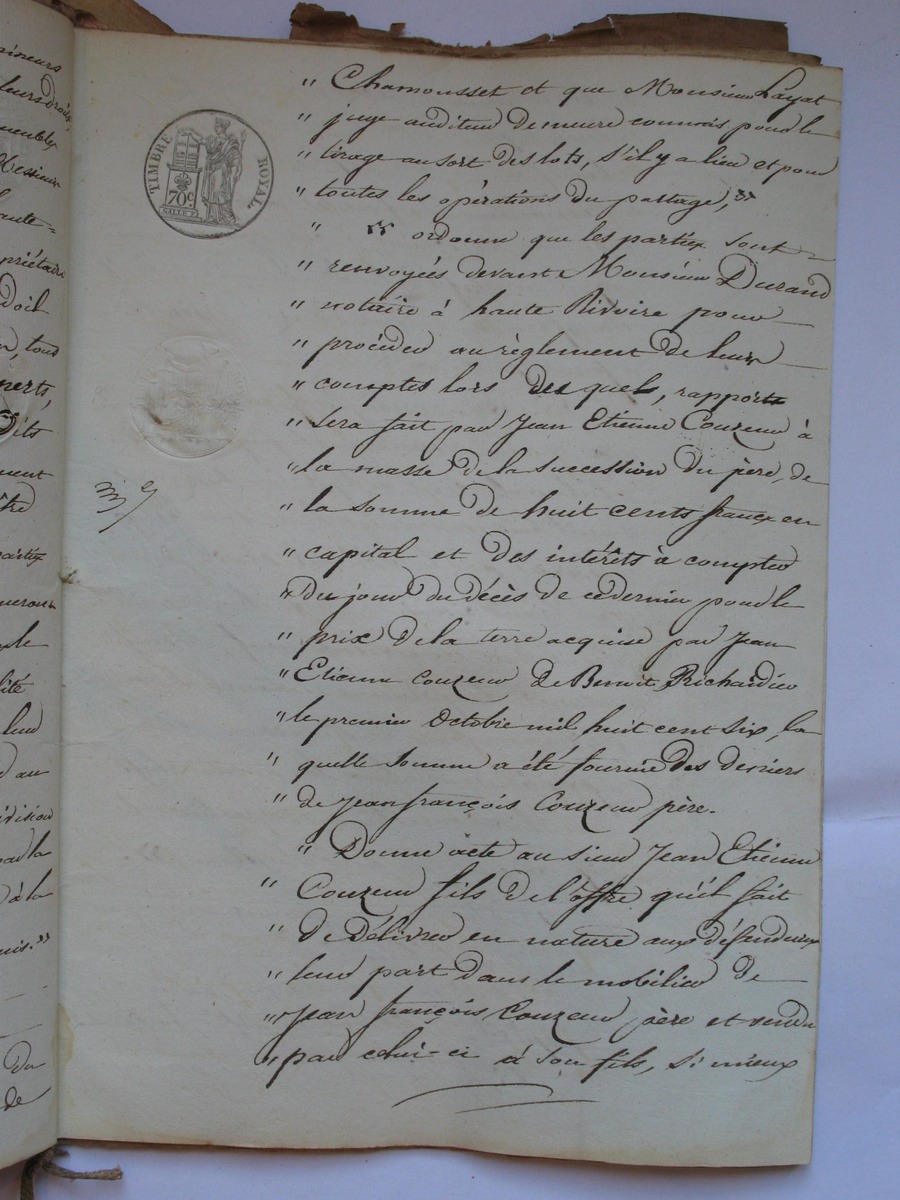 TIMBRE ROYAL
70c
" Chamousset et que Monsieur Layat
" juge auditeur demeure commis pour le
" tirage au sort des lots, s'il y a lieu et pour
" toutes les opérations du partage, "
" " ordonne que les parties sont
" renvoyées devant Monsieur Durand
" notaire à haute Rivoire pour
" procéder au règlement de leurs
" comptes lors des quels, rapport
" sera fait par Jean Etienne Couzeur à
" la masse de la succession du père, de
" la somme de huit cents francs en
" capital et des intérêts à compter
" du jour du décès de ce dernier pour le
" prix de la terre acquise par Jean
" Etienne Couzeur de Benoit Richardier
" le premier octobre mil huit cent six, la
" quelle somme a été fournie des deniers
" de Jean françois Couzeur père.
" Donne acte au sieur Jean Etienne
" Couzeur fils de l'offre qu'il fait
" de délivrer en nature aux défendeurs
" leur part dans le mobilier de
" Jean françois Couzeur père et vendu
" par celui-ci à son fils, si mieux